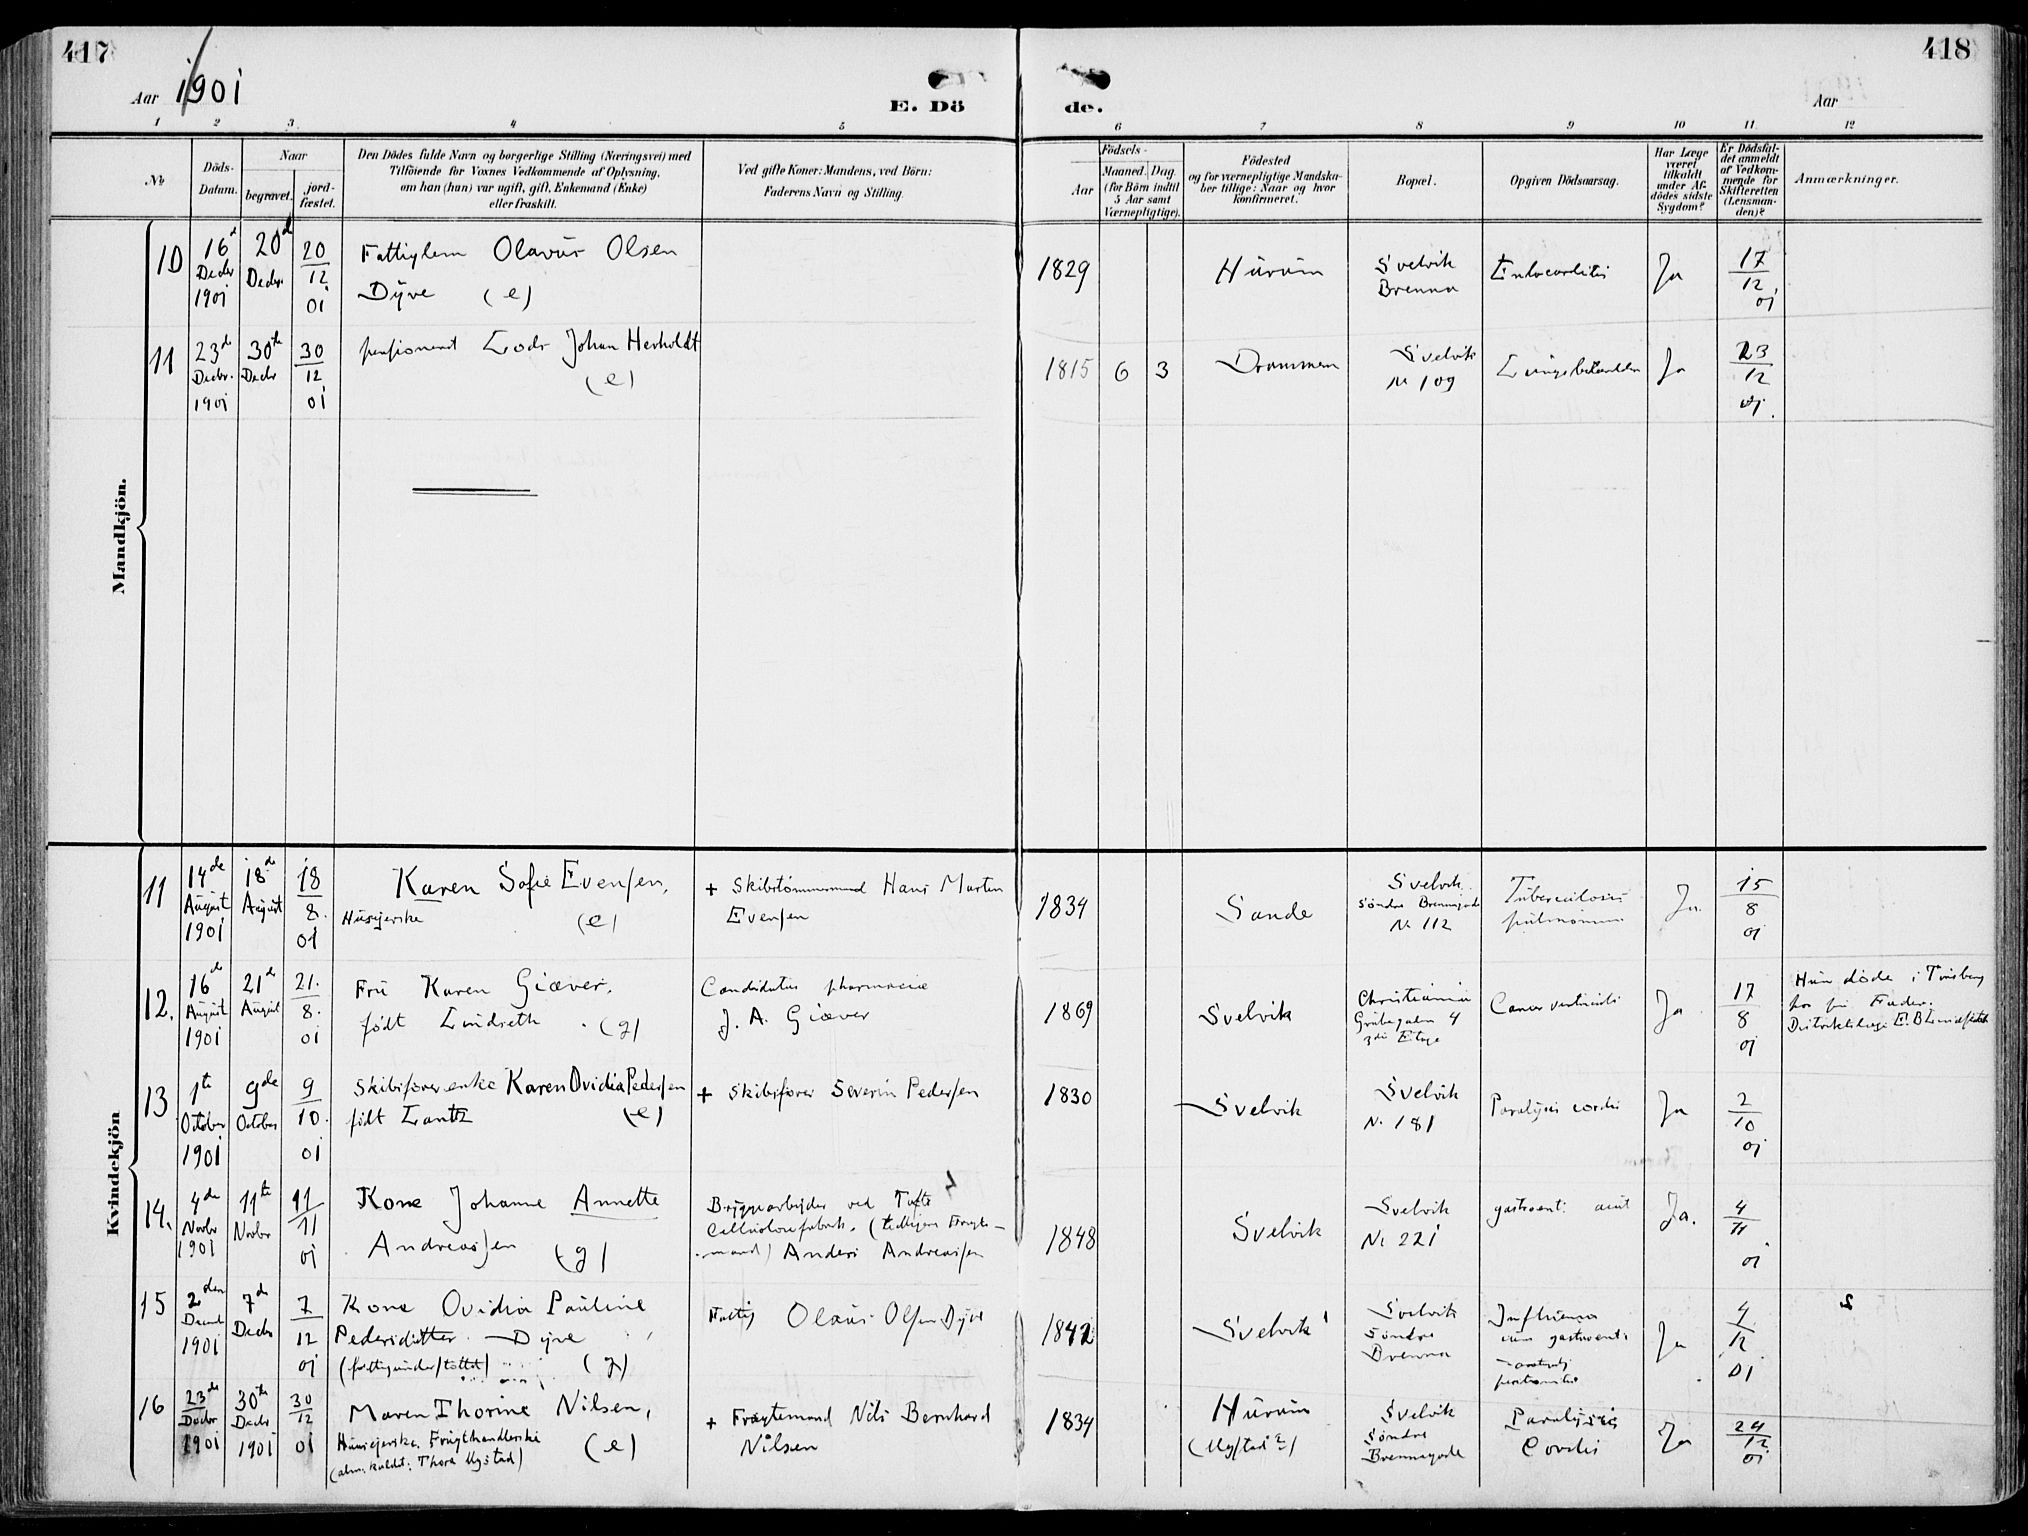 417
418
Aar 1901
E. Döde.
Aar
1 2 3. 4 5 6 7 8 9 10 11. 12
No
Döds-Datum.
Naar
begravet.
jord-fæstet.
Den Dödes fulde Navn og borgerlige Stilling (Næringsvei) med
Tilföiende for Voxnes Vedkommende af Oplysning,
om han (hun) var ugift, gift, Enkemand (Enke)
eller fraskilt.
Ved gifte Koner: Mandens, ved Börn:
Faderens Navn og Stilling.
Födsels-
Aar
Maaned. Dag.
(for Börn indtil
5 Aar samt
Værnepligtige).
Födested
og for værnepligtige Mandska-
ber tillige: Naar og hvor
konfirmeret.
Bopæl.
Opgiven Dödsaarsag.
Har Læge
været
tilkaldt
under Af-
dödes sidste
Sygdom?
Er Dödsfal-
det anmeldt
af Vedkom-
mende for
Skifteretten
(Lensman-
den)?
Anmærkninger.
Mandkjön.
10 16d Decbr 1901 20d Decbr. 20/12 01
Fattiglem Olavus Olsen
Dyve (e)
1829 Hurum Svelvik
Brenna
Endocarditis Ja 17/12 01
11 23de Decbr. 1901 30te Decbr 30/12 01
pensioneret Lods Johan Herholdt
(e)
1815 6 3 Drammen Svelvik
No 109
Lungebetændelse Ja 23/12 01.
Kvindekjön
11 14de August 1901 18de August 18/8. 01
Karen Sofie Evensen,
Huseierske (e)
+ Skibstömmermand Hans Martin
Evensen
1834 Sande Svelvik
Söndre Brennagade
No 112
Tuberculosis
pulmonum
Ja. 15/8 01
12. 16de August 1901 21de August 21./8. 01
Fru Karen Giæver,
födt Lindseth. (g)
Candidatus pharmaciæ
J. A. Giæver
1869 Svelvik Christiania
Grubegaden 4
3die Etage
Cancer ventriculi Ja 17/8 01
Hun döde i Tönsberg
hos sin Fader.
13 1te October 1901 9de October 9/10. 01
Skibsförerenke Karen Ovidia Pedersen
födt Lantz (e)
+ Skibsförer Severin Pedersen
1830 Svelvik Svelvik
No. 181
Paralysis cordis Ja 2/10 01
14. 4de Novbr 1901 11te Novbr 11/11 01
Kone Johanne Annette
Andreassen (g)
Bryggearbeider ved Tofte
Cellulosefabrik. (tidligere Fragte-
mand) Anders Andreassen
1848 Svelvik Svelvik
No 221
gastroent: acut Ja. 4/11 01
15 2den 1901 7de Decbr 7/12 01
Kone Ovidia Pauline
Pedersdatter Dyve
(fattigunderstöttet) (g)
Fattig Olaus Olsen Dyve
1842 Svelvik Svelvik
Söndre
Brenna
Influenza
cum gastroent:
Ja 4/12 01
16 23de Decbr 1901 30te Decbr 1901 30/12 01
Maren Thorine Nilsen,
Huseierske, Frugthandlerske
(alm. kaldt: Thora Mystad) (e)
+ Fragtemand Nils Bernhard
Nilsen
1834 Hurum
Svelvik
Söndre
Brennagade
Paralysis
Cordis
Ja 24/12. 01